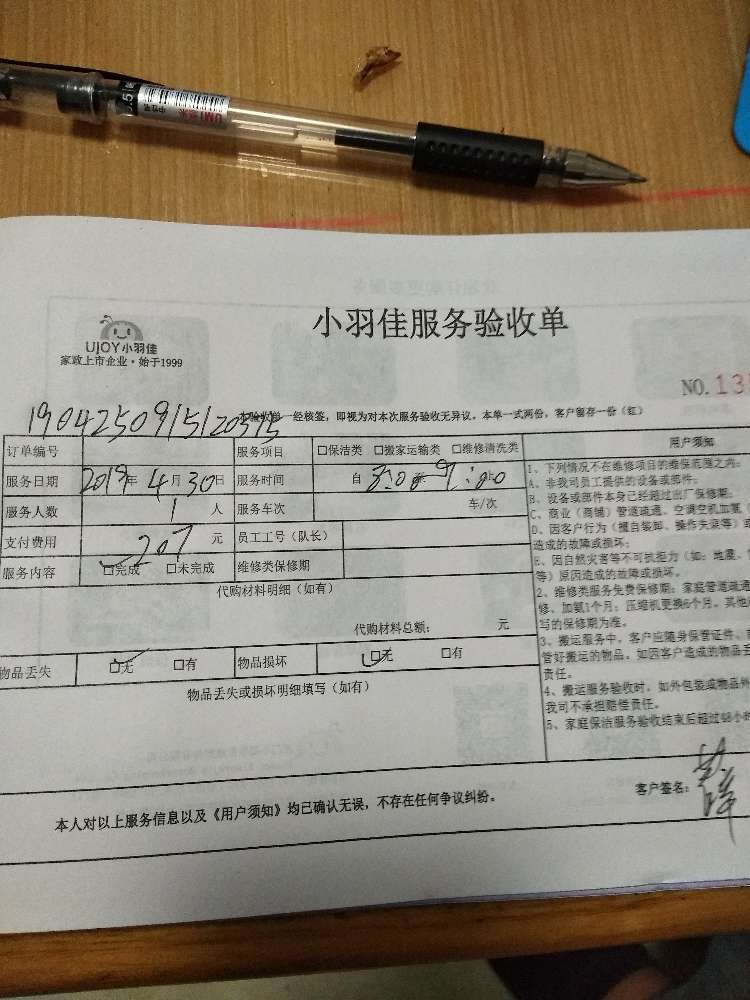 小羽佳服务验收单
UJOY小羽佳
家政上市企业·始于1999
NO.13
本验收单一经核签，即视为对本次服务验收无异议。本单一式两份，客户留存一份（红）
订单编号
服务项目 □保洁类 □搬家运输类 □维修清洗类
服务日期 2019年4月30日
服务时间 自 8:00 至 9:00
服务人数 1 人
服务车次 车/次
支付费用 207 元
员工工号（队长）
服务内容 □完成 □未完成
维修类保修期
代购材料明细（如有）
代购材料总额： 元
物品丢失 □无 □有
物品损坏 □无 □有
物品丢失或损坏明细填写（如有）
用户须知
1、下列情况不在维修项目的维保范围之内：
A、非我司员工提供的设备或部件；
B、设备或部件本身已经超过出厂保修期；
C、商业（商铺）管道疏通、空调空机加氟（
D、因客户行为（擅自装卸、操作失误等）或
造成的故障或损坏；
E、因自然灾害等不可抗拒力（如：地震、
等）原因造成的故障或损坏。
2、维修类服务免费保修期：家庭管道疏通
修、加氟1个月；压缩机更换6个月。其他
写的保修期为准。
3、搬运服务中，客户应随身保管证件、
管好搬运的物品。如因客户造成的物品
责任。
4、搬运服务验收时，如外包装或物品外
我司不承担赔偿责任。
5、家庭保洁服务验收结束后超过48小时
本人对以上服务信息以及《用户须知》均已确认无误，不存在任何争议纠纷。
客户签名：